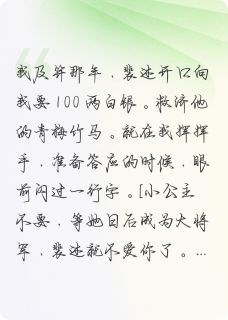 我及笄那年，裴述开口向
我要100两白银。救济他
的青梅竹马。就在我挥挥
手，准备答应的时候，眼
前闪过一行字。[小公主
不要，等她日后成为大将
军，裴述就不爱你了。...